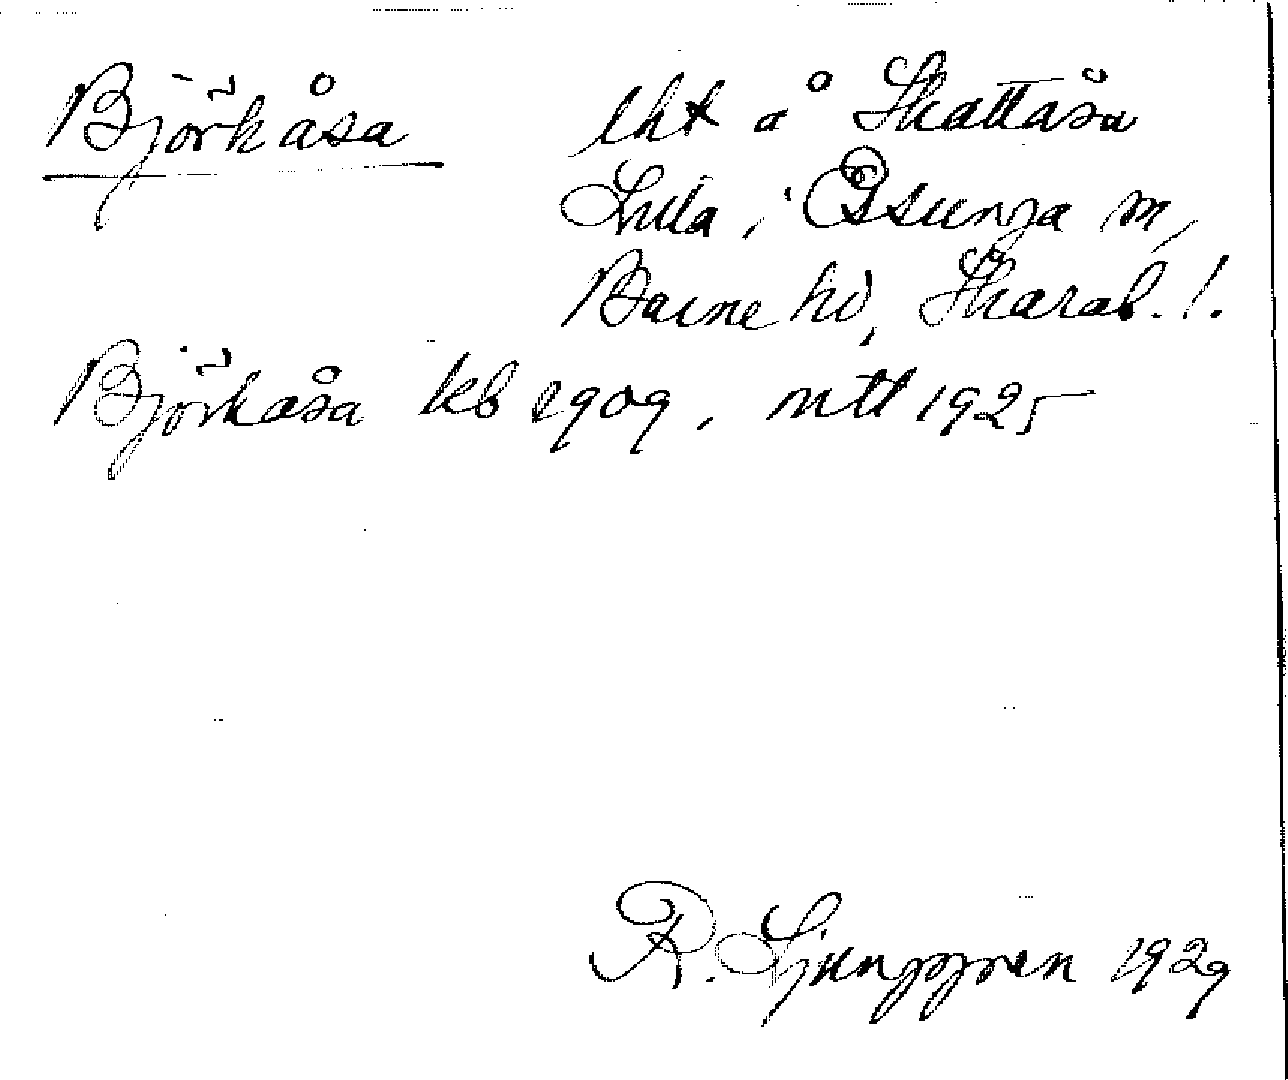 Björkåsa lht å Skattåsa
Lilla, i Essunga sn,
Barne hd, Skarab. l.
Björkåsa kb 1909, mtl 1925
R. Ljunggren 1929